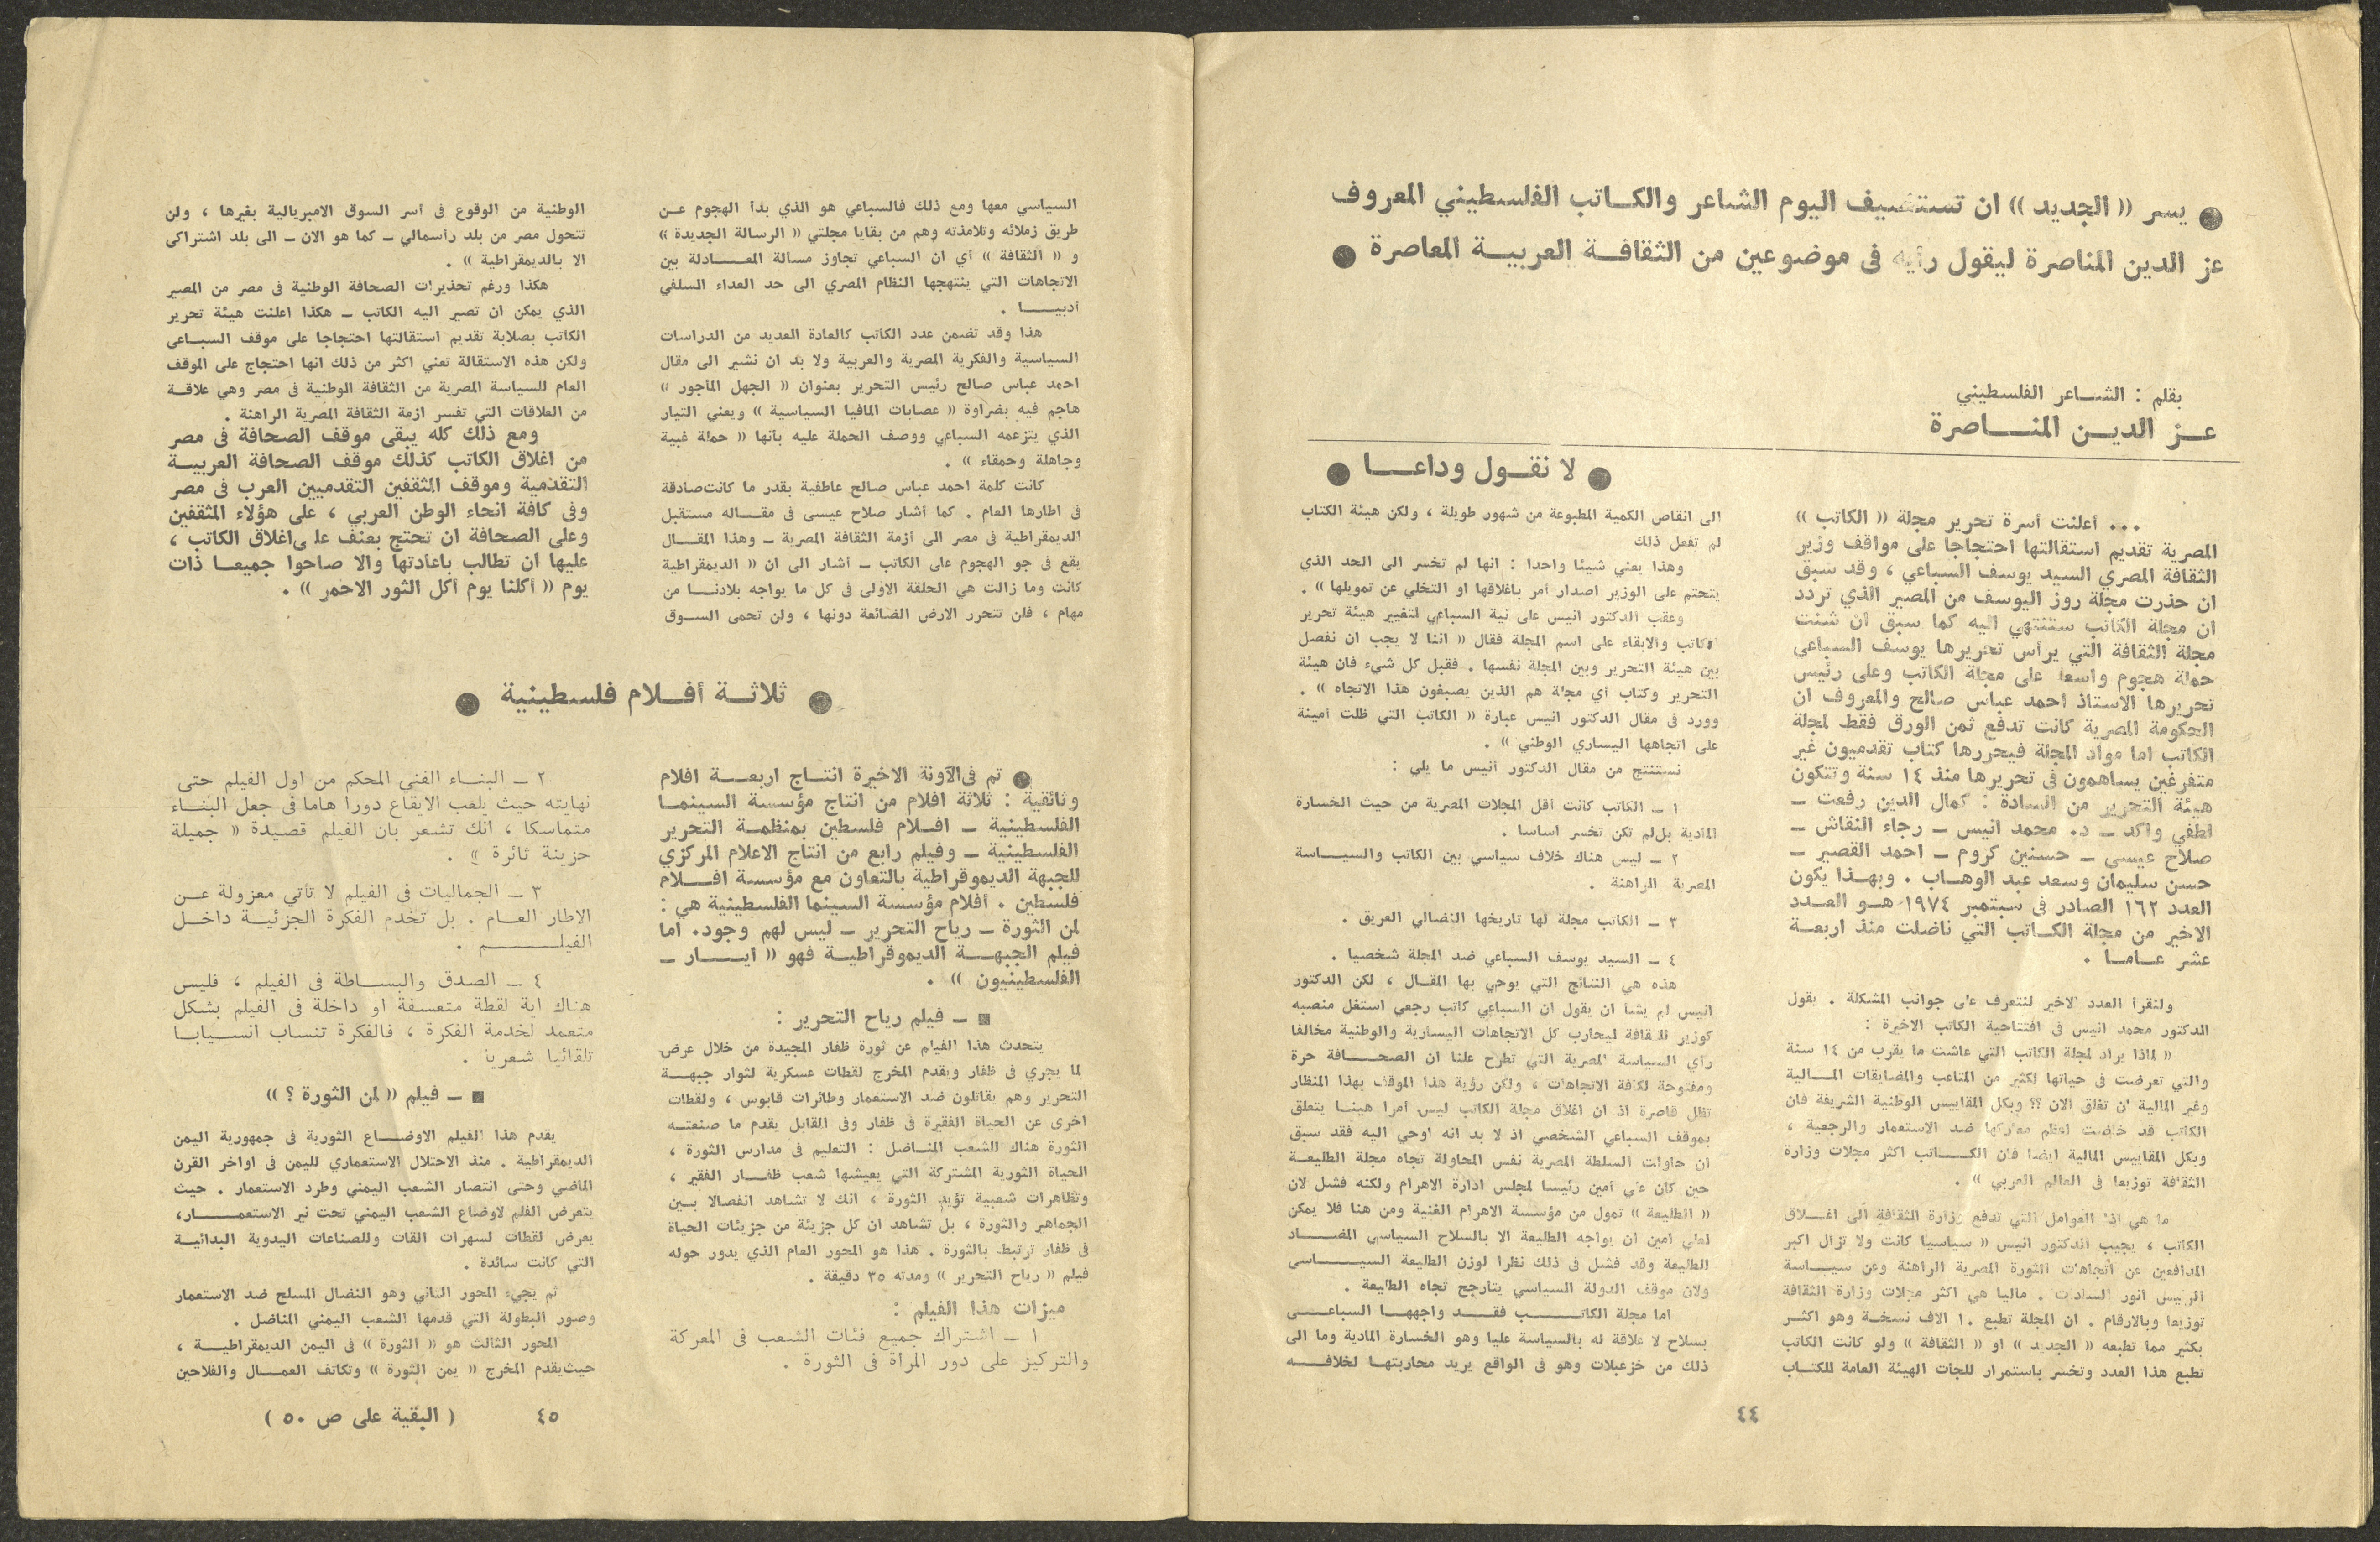 ● يسر « الجديد » ان تستضيف اليوم الشاعر والكاتب الفلسطيني المعروف
عز الدين المناصرة ليقول رأيه فى موضوعين من الثقافة العربية المعاصرة ●
بقلم : الشاعر الفلسطيني
عز الدين المناصرة
● لا نقول وداعا ●
... أعلنت أسرة تحرير مجلة « الكاتب »
المصرية تقديم استقالتها احتجاجا على مواقف وزير
الثقافة المصري السيد يوسف السباعي ، وقد سبق
ان حذرت مجلة روز اليوسف من المصير الذي تردد
ان مجلة الكاتب ستنتهي اليه كما سبق ان شنت
مجلة الثقافة التي يرأس تحريرها يوسف السباعي
حملة هجوم واسعة على مجلة الكاتب وعلى رئيس
تحريرها الاستاذ احمد عباس صالح والمعروف ان
الحكومة المصرية كانت تدفع ثمن الورق فقط لمجلة
الكاتب اما مواد المجلة فيحررها كتاب تقدميون غير
متفرغين يساهمون فى تحريرها منذ ١٤ سنة وتتكون
هيئة التحرير من السادة : كمال الدين رفعت ـ
لطفي واكد ـ د. محمد انيس ـ رجاء النقاش ـ
صلاح عيسى ـ حسنين كروم ـ احمد القصير ـ
حسن سليمان وسعد عبد الوهاب . وبهذا يكون
العدد ١٦٢ الصادر فى سبتمبر ١٩٧٤ هو العدد
الاخير من مجلة الكاتب التي ناضلت منذ اربعة
عشر عاما .
ولنقرأ العدد الاخير لنتعرف على جوانب المشكلة . يقول
الدكتور محمد انيس فى افتتاحية الكاتب الاخيرة :
« لماذا يراد لمجلة الكاتب التي عاشت ما يقرب من ١٤ سنة
والتي تعرضت فى حياتها لكثير من المتاعب والمضايقات المالية
وغير المالية ان تغلق الان ؟؟ وبكل المقاييس الوطنية الشريفة فان
الكاتب قد خاضت اعظم معاركها ضد الاستعمار والرجعية ،
وبكل المقاييس المالية ايضا فان الكاتب اكثر مجلات وزارة
الثقافة توزيعا فى العالم العربي » .
ما هي اذا العوامل التي تدفع وزارة الثقافة الى اغلاق
الكاتب ، يجيب الدكتور انيس « سياسيا كانت ولا تزال اكبر
المدافعين عن اتجاهات الثورة المصرية الراهنة وعن سياسة
الرئيس انور السادات . ماليا هي اكثر مجلات وزارة الثقافة
توزيعا وبالارقام . ان المجلة تطبع ١٠ الاف نسخة وهو اكثر
بكثير مما تطبعه « الجديد » او « الثقافة » ولو كانت الكاتب
تطبع هذا العدد وتخسر باستمرار للجأت الهيئة العامة للكتاب
الى انقاص الكمية المطبوعة من شهور طويلة ، ولكن هيئة الكتاب
لم تفعل ذلك
وهذا يعني شيئا واحدا : انها لم تخسر الى الحد الذي
يتحتم على الوزير اصدار أمر باغلاقها او التخلي عن تمويلها » .
وعقب الدكتور انيس على نية السباعي لتغيير هيئة تحرير
الكاتب والابقاء على اسم المجلة فقال « اننا لا يجب ان نفصل
بين هيئة التحرير وبين المجلة نفسها . فقبل كل شيء فان هيئة
التحرير وكتاب أي مجلة هم الذين يصيغون هذا الاتجاه » .
وورد فى مقال الدكتور انيس عبارة « الكاتب التي ظلت أمينة
على اتجاهها اليساري الوطني » .
نستنتج من مقال الدكتور أنيس ما يلي :
١ ـ الكاتب كانت أقل المجلات المصرية من حيث الخسارة
المادية بل لم تكن تخسر اساسا .
٢ ـ ليس هناك خلاف سياسي بين الكاتب والسياسة
المصرية الراهنة .
٣ ـ الكاتب مجلة لها تاريخها النضالي العريق .
٤ ـ السيد يوسف السباعي ضد المجلة شخصيا .
هذه هي النتائج التي يوحي بها المقال ، لكن الدكتور
انيس لم يشأ ان يقول ان السباعي كاتب رجعي استغل منصبه
كوزير للثقافة ليحارب كل الاتجاهات اليسارية والوطنية مخالفا
رأي السياسة المصرية التي تطرح علنا ان الصحافة حرة
ومفتوحة لكافة الاتجاهات ، ولكن رؤية هذا الموقف بهذا المنظار
تظل قاصرة اذ ان اغلاق مجلة الكاتب ليس أمرا هينا يتعلق
بموقف السباعي الشخصي اذ لا بد انه اوحي اليه فقد سبق
ان حاولت السلطة المصرية نفس المحاولة تجاه مجلة الطليعة
حين كان علي أمين رئيسا لمجلس ادارة الاهرام ولكنه فشل لان
« الطليعة » تمول من مؤسسة الاهرام الغنية ومن هنا فلا يمكن
لعلي امين ان يواجه الطليعة الا بالسلاح السياسي المضاد
الطليعة وقد فشل فى ذلك نظرا لوزن الطليعة السياسى
ولان موقف الدولة السياسي يتأرجح تجاه الطليعة .
اما مجلة الكاتب فقد واجهها السباعى
بسلاح لا علاقة له بالسياسة عليا وهو الخسارة المادية وما الى
ذلك من خزعبلات وهو فى الواقع يريد محاربتها لخلافه
٤٤
السياسي معها ومع ذلك فالسباعي هو الذي بدأ الهجوم عن
طريق زملائه وتلامذته وهم من بقايا مجلتي « الرسالة الجديدة »
و « الثقافة » أي ان السباعي تجاوز مسألة المعادلة بين
الاتجاهات التي ينتهجها النظام المصري الى حد العداء السلفي
أدبيا .
هذا وقد تضمن عدد الكاتب كالعادة العديد من الدراسات
السياسية والفكرية المصرية والعربية ولا بد ان نشير الى مقال
احمد عباس صالح رئيس التحرير بعنوان « الجهل المأجور »
هاجم فيه بضراوة « عصابات المافيا السياسية » ويعني التيار
الذي يتزعمه السباعي ووصف الحملة عليه بأنها « حملة غبية
وجاهلة وحمقاء » .
كانت كلمة احمد عباس صالح عاطفية بقدر ما كانت صادقة
فى اطارها العام . كما أشار صلاح عيسى فى مقاله مستقبل
الديمقراطية فى مصر الى أزمة الثقافة المصرية ـ وهذا المقال
يقع فى جو الهجوم على الكاتب ـ أشار الى ان « الديمقراطية
كانت وما زالت هي الحلقة الاولى فى كل ما يواجه بلادنا من
مهام ، فلن تتحرر الارض الضائعة دونها ، ولن تحمى السوق
الوطنية من الوقوع فى أسر السوق الامبريالية بغيرها ، ولن
تتحول مصر من بلد رأسمالي ـ كما هو الان ـ الى بلد اشتراكى
الا بالديمقراطية » .
هكذا ورغم تحذيرات الصحافة الوطنية فى مصر من المصير
الذي يمكن ان تصير اليه الكاتب ـ هكذا اعلنت هيئة تحرير
الكاتب بصلابة تقديم استقالتها احتجاجا على موقف السباعى
ولكن هذه الاستقالة تعني اكثر من ذلك انها احتجاج على الموقف
العام للسياسة المصرية من الثقافة الوطنية فى مصر وهي علاقة
من العلاقات التي تفسر ازمة الثقافة المصرية الراهنة .
ومع ذلك كله يبقى موقف الصحافة فى مصر
من اغلاق الكاتب كذلك موقف الصحافة العربية
التقدمية وموقف المثقفين التقدميين العرب فى مصر
وفى كافة انحاء الوطن العربي ، على هؤلاء المثقفين
وعلى الصحافة ان تحتج بعنف على اغلاق الكاتب ،
عليها ان تطالب باعادتها والا صاحوا جميعا ذات
يوم « أكلنا يوم أكل الثور الاحمر » .
● ثلاثة أفلام فلسطينية ●
● تم فى الآونة الاخيرة انتاج اربعة افلام
وثائقية : ثلاثة افلام من انتاج مؤسسة السينما
الفلسطينية ـ افلام فلسطين بمنظمة التحرير
الفلسطينية ـ وفيلم رابع من انتاج الاعلام المركزي
للجبهة الديموقراطية بالتعاون مع مؤسسة افلام
فلسطين . أفلام مؤسسة السينما الفلسطينية هي :
لمن الثورة ـ رياح التحرير ـ ليس لهم وجود. اما
فيلم الجبهة الديموقراطية فهو « ايار ـ
الفلسطينيون » .
■ ـ فيلم رياح التحرير :
يتحدث هذا الفيلم عن ثورة ظفار المجيدة من خلال عرض
لما يجري فى ظفار ويقدم المخرج لقطات عسكرية لثوار جبهة
التحرير وهم يقاتلون ضد الاستعمار وطائرات قابوس ، ولقطات
اخرى عن الحياة الفقيرة فى ظفار وفى المقابل يقدم ما صنعته
الثورة هناك للشعب المناضل : التعليم فى مدارس الثورة ،
الحياة الثورية المشتركة التي يعيشها شعب ظفار الفقير ،
وتظاهرات شعبية تؤيد الثورة ، انك لا تشاهد انفصالا بين
الجماهير والثورة ، بل تشاهد ان كل جزيئة من جزيئات الحياة
فى ظفار ترتبط بالثورة . هذا هو المحور العام الذي يدور حوله
فيلم « رياح التحرير » ومدته ٣٥ دقيقة .
ميزات هذا الفيلم :
١ ـ اشتراك جميع فئات الشعب فى المعركة
والتركيز على دور المرأة فى الثورة .
٢ ـ البناء الفني المحكم من اول الفيلم حتى
نهايته حيث يلعب الايقاع دورا هاما فى جعل البناء
متماسكا ، انك تشعر بان الفيلم قصيدة « جميلة
حزينة ثائرة » .
٣ ـ الجماليات فى الفيلم لا تأتي معزولة عن
الاطار العام . بل تخدم الفكرة الجزئية داخل
الفيلم .
٤ ـ الصدق والبساطة فى الفيلم ، فليس
هناك اية لقطة متعسفة او داخلة فى الفيلم بشكل
متعمد لخدمة الفكرة ، فالفكرة تنساب انسيابا
تلقائيا شعريا .
■ ـ فيلم « لمن الثورة ؟ »
يقدم هذا الفيلم الاوضاع الثورية فى جمهورية اليمن
الديمقراطية . منذ الاحتلال الاستعماري لليمن فى اواخر القرن
الماضي وحتى انتصار الشعب اليمني وطرد الاستعمار . حيث
يتعرض الفلم لاوضاع الشعب اليمني تحت نير الاستعمار،
يعرض لقطات لسهرات القات وللصناعات اليدوية البدائية
التي كانت سائدة .
ثم يجيء المحور الثاني وهو النضال المسلح ضد الاستعمار
وصور البطولة التي قدمها الشعب اليمني المناضل .
المحور الثالث هو « الثورة » فى اليمن الديمقراطية ،
حيث يقدم المخرج « يمن الثورة » وتكاتف العمال والفلاحين
( البقية على ص ٥٠ )
٤٥